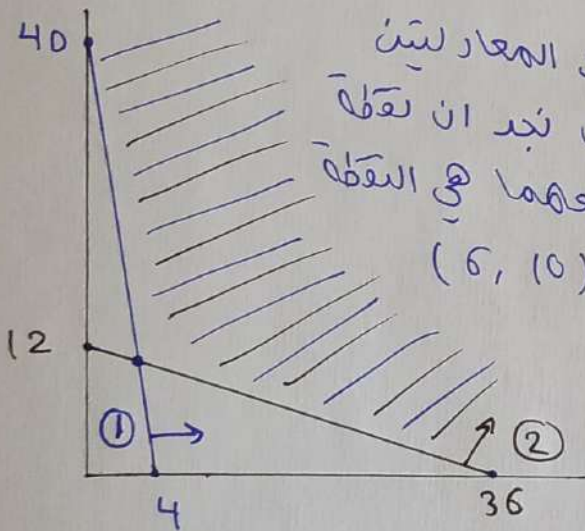 40
المعادلتين
نجد ان نقطة
هي النقطة
(6, 10)
12
① ②
4 36